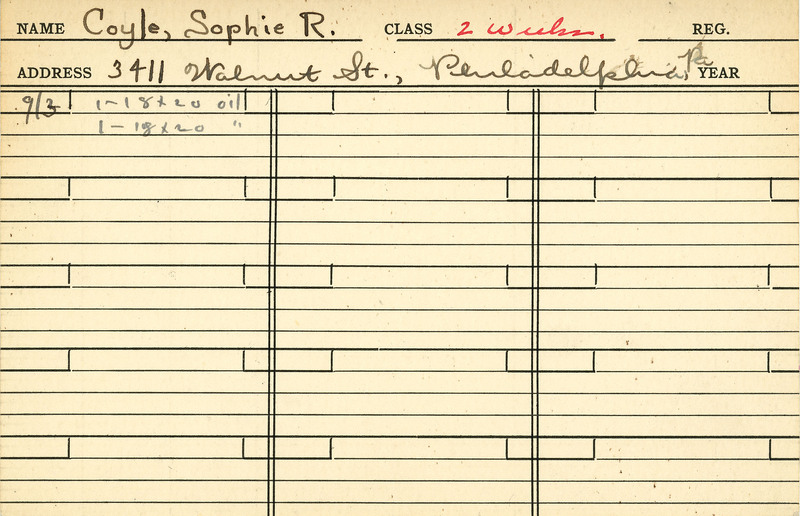 NAME Coyle, Sophie R. CLASS 2 weeks. REG.
ADDRESS 3411 Walnut St., Philadelphia, Pa YEAR
9/3 1-18x20 oil
1-18x20 "